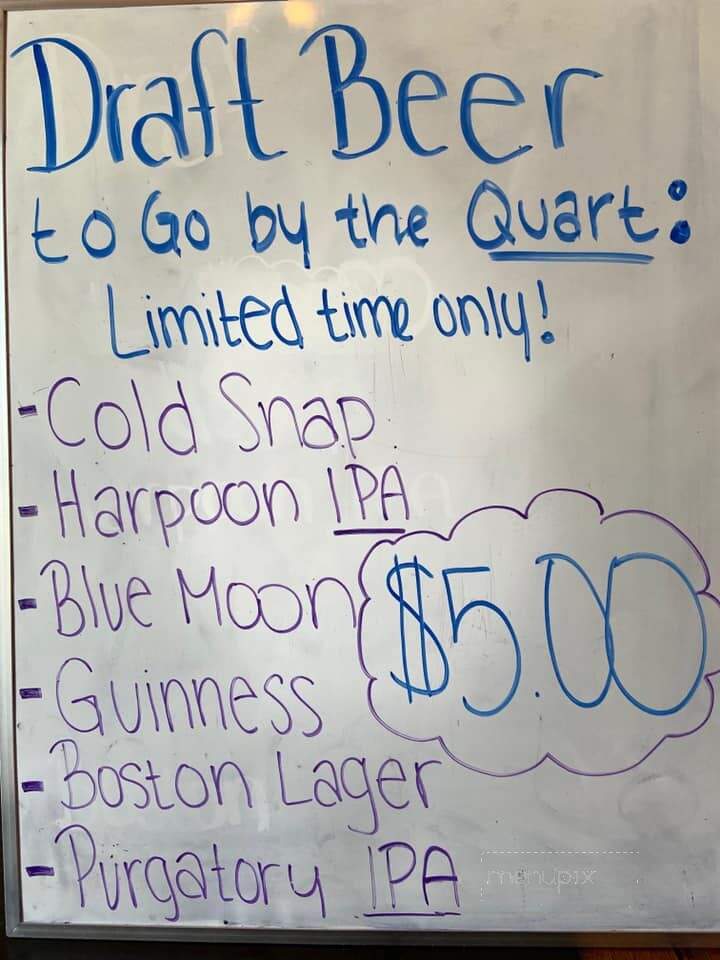 Draft Beer
to Go by the Quart:
Limited time only!
-Cold Snap
-Harpoon IPA
-Blue Moon
$5.00
-Guinness
-Boston Lager
-Purgatory IPA
menupix